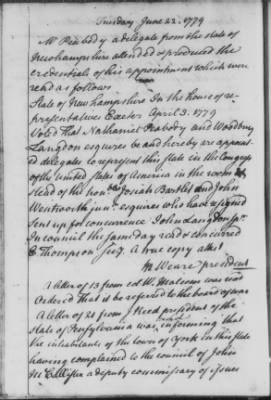 Tuesday June 22. 1779
Mr Peabody a delegate from the state of
Newhampshire attended & produced the
credentials of his appointment which were
read as follows
State of Newhampshire In the house of re-
presentatives Easter April 3. 1779
Voted That Nathaniel Peabody and Woodbury
Langdon esquires be and hereby are appoint-
ed delegates to represent this state in the Congress
of the united states of America in the room &
stead of the honble Josiah Bartlet and John
Wentworth junr. esquires who have resigned
Sent up for concurrence John Langdon Spr.
In council the same day read & concurred
E Thompson Secy. A true copy attest
M Weare president
A letter of 13 from col W. Malcom was read
Ordered That it be referred to the board of war
A letter of 21 from J Reed president of the
state of Pensylvania was, informing that
the inhabitants of the town of York in this state
having complained to the council of John
a deputy commissary of issues